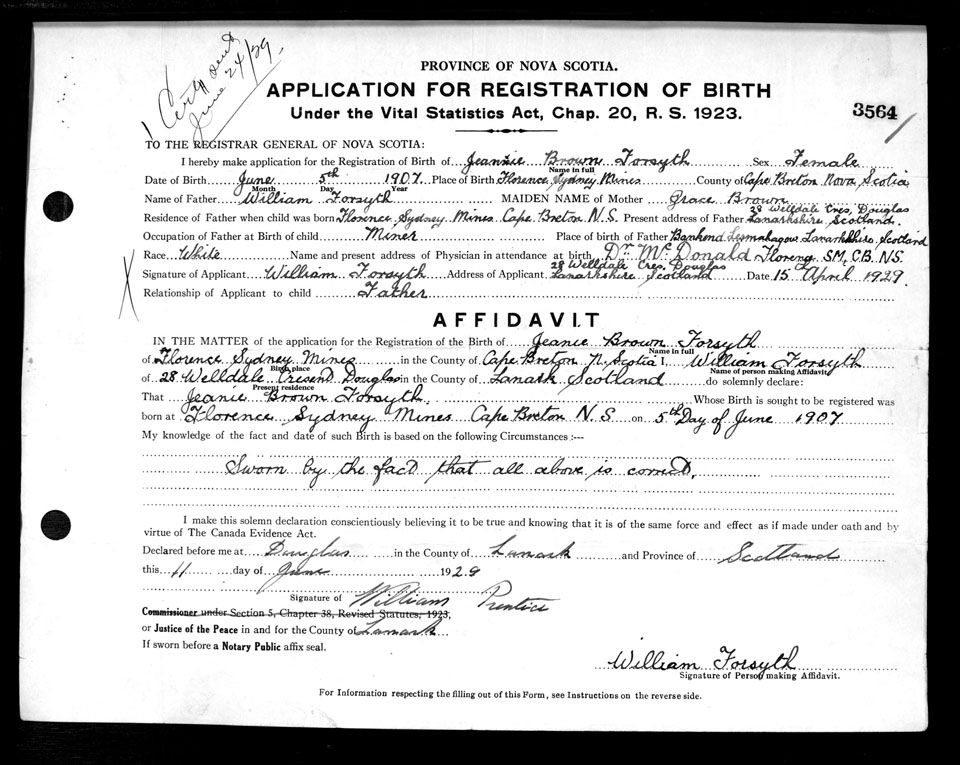 Certf sent
June 24/29
PROVINCE OF NOVA SCOTIA.
APPLICATION FOR REGISTRATION OF BIRTH
Under the Vital Statistics Act, Chap. 20, R. S. 1923.
3564
TO THE REGISTRAR GENERAL OF NOVA SCOTIA:
I hereby make application for the Registration of Birth of Jeannie Brown Forsyth Sex Female
Name in full
Date of Birth June 5th 1907 Place of Birth Florence Sydney Mines County of Cape Breton Nova Scotia
Month Day Year
Name of Father William Forsyth MAIDEN NAME of Mother Grace Brown
28 Welldale Cres, Douglas
Residence of Father when child was born Florence Sydney Mines Cape Breton N.S. Present address of Father Lanarkshire Scotland.
Occupation of Father at Birth of child Miner Place of birth of Father Bankend Lesmahagow Lanarkshire Scotland
Race White Name and present address of Physician in attendance at birth Dr. McDonald Florence S.M, C.B. N.S.
28 Welldale Cres, Douglas
Signature of Applicant William Forsyth Address of Applicant Lanarkshire Scotland Date 15 April 1929
Relationship of Applicant to child Father
AFFIDAVIT
IN THE MATTER of the application for the Registration of the Birth of Jeanie Brown Forsyth
Name in full
of Florence Sydney Mines in the County of Cape Breton N. Scotia I, William Forsyth
Birth place Name of person making Affidavit
of 28 Welldale Cresent Douglas in the County of Lanark Scotland do solemnly declare:
Present residence
That Jeanie Brown Forsyth. Whose Birth is sought to be registered was
born at Florence Sydney Mines Cape Breton N. S on 5th Day of June 1907
My knowledge of the fact and date of such Birth is based on the following Circumstances :—
Sworn by the fact that all above is correct.
I make this solemn declaration conscientiously believing it to be true and knowing that it is of the same force and effect as if made under oath and by
virtue of The Canada Evidence Act.
Declared before me at Douglas in the County of Lanark and Province of Scotland
this 11 day of June 1929
Signature of William Prentice
Commissioner under Section 5, Chapter 38, Revised Statutes, 1923,
or Justice of the Peace in and for the County of Lanark
If sworn before a Notary Public affix seal.
William Forsyth
Signature of Person making Affidavit.
For Information respecting the filling out of this Form, see Instructions on the reverse side.